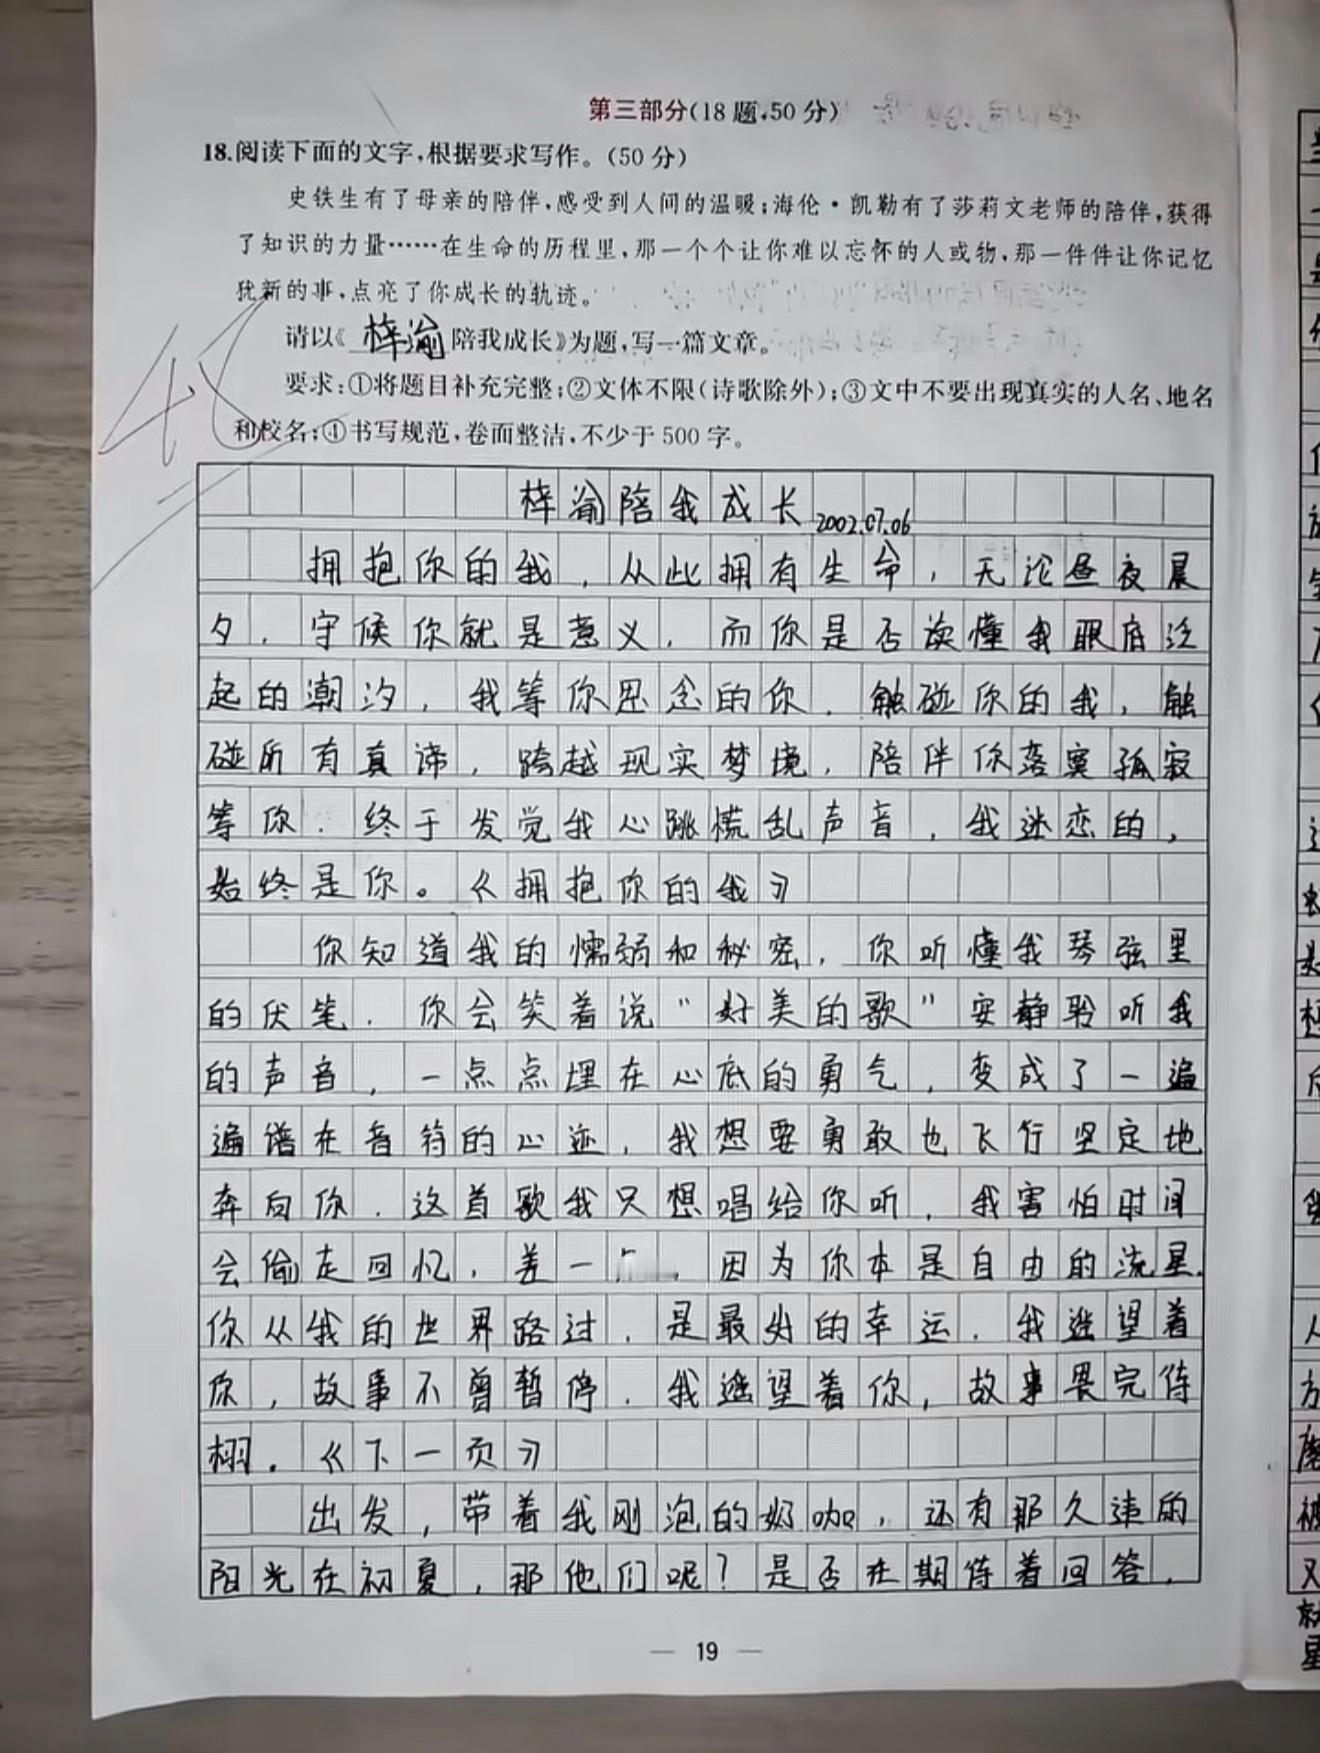 第三部分(18题,50分)
18.阅读下面的文字,根据要求写作。(50分)
史铁生有了母亲的陪伴,感受到人间的温暖;海伦·凯勒有了莎莉文老师的陪伴,获得
了知识的力量……在生命的历程里,那一个个让你难以忘怀的人或物,那一件件让你记忆
犹新的事,点亮了你成长的轨迹。
请以《梓渝陪我成长》为题,写一篇文章。
要求:①将题目补充完整;②文体不限(诗歌除外);③文中不要出现真实的人名、地名
和校名;④书写规范,卷面整洁,不少于500字。
48
梓渝陪我成长 2002.07.06
拥抱你的我,从此拥有生命,无论昼夜晨
夕,守候你就是意义,而你是否读懂我眼底泛
起的潮汐,我等你思念的你,触碰你的我,触
碰所有真谛,跨越现实梦境,陪伴你落寞孤寂
等你.终于发觉我心跳慌乱声音,我迷恋的,
始终是你。《拥抱你的我》
你知道我的懦弱和秘密,你听懂我琴弦里
的伏笔.你会笑着说"好美的歌"安静聆听我
的声音,一点点埋在心底的勇气,变成了一遍
遍谱在音符的心迹,我想要勇敢也飞行坚定地
奔向你.这首歌我只想唱给你听,我害怕时间
会偷走回忆,差一 因为你本是自由的流星.
你从我的世界路过.是最好的幸运.我遥望着
你,故事不曾暂停.我遥望着你,故事畏完待
栩.《下一页》
出发,带着我刚泡的奶咖,还有那久违的
阳光在初夏,那他们呢?是否在期待着回答,
19